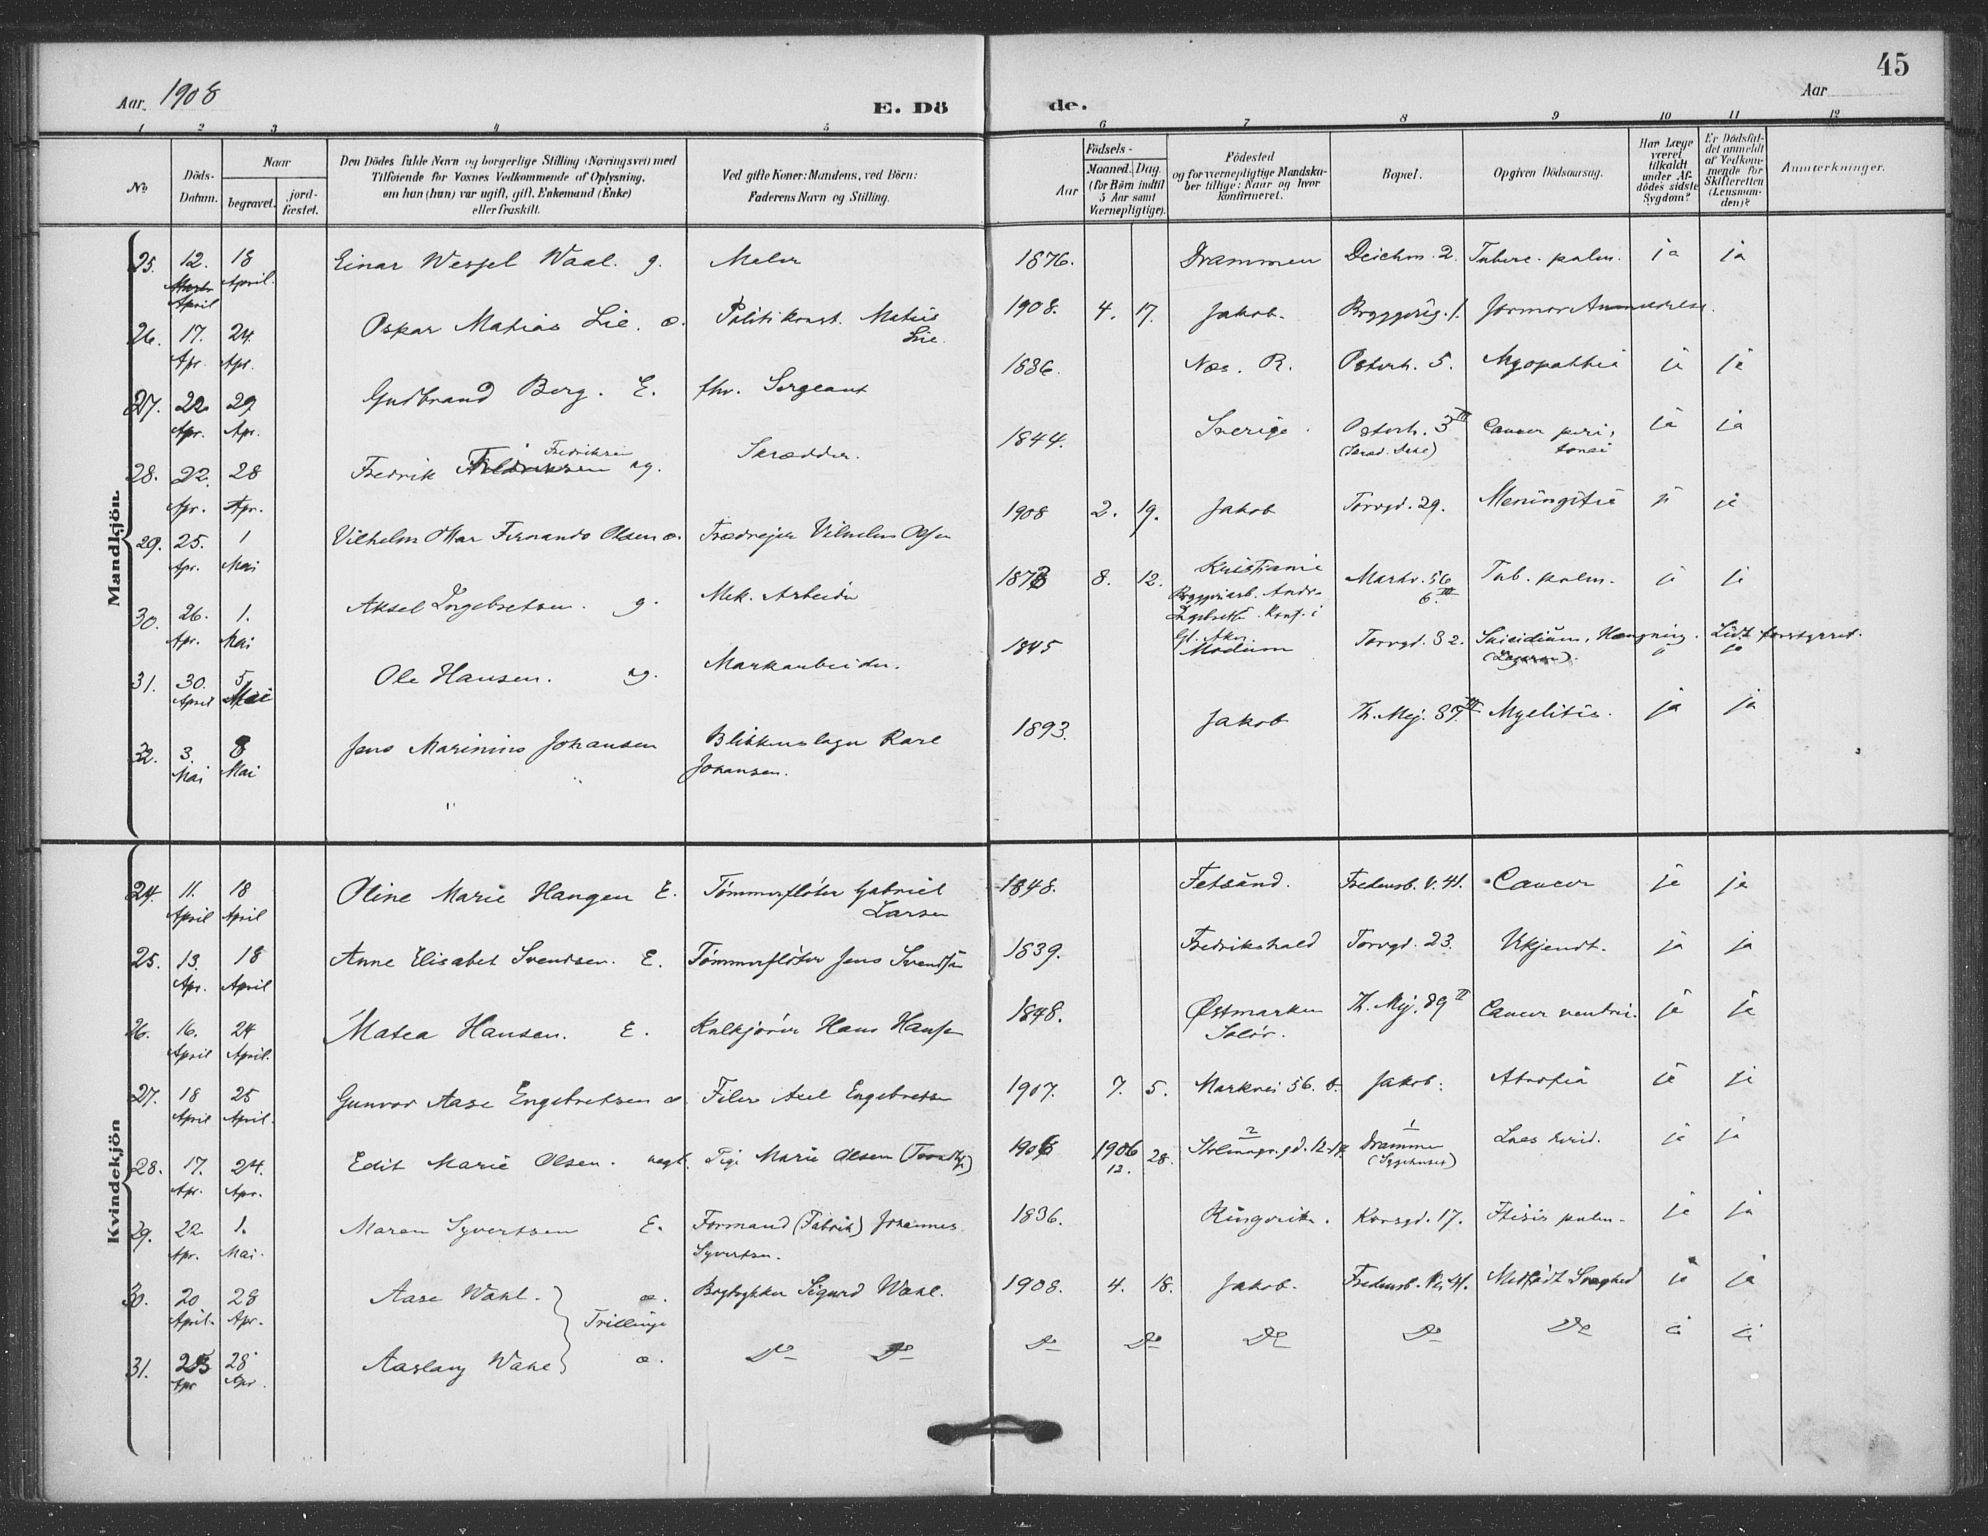 45
Aar 1908
E. Dö
de.
Aar
1 2 3 4 5 6 7 8 9 10 11 12
No
Döds-
Datum.
Naar
begravet.
jord-
fæstet.
Den Dödes fulde Navn og borgerlige Stilling (Næringsvei) med
Tilföiende for Voxnes Vedkommende af Oplysning,
om han (hun) var ugift, gift, Enkemand (Enke)
eller fraskilt.
Ved gifte Koner: Mandens, ved Börn:
Faderens Navn og Stilling.
Födsels-
Aar
Maaned. Dag.
(for Börn indtil
5 Aar samt
Værnepligtige).
Födested
og for værnepligtige Mandska-
ber tillige: Naar og hvor
konfirmeret.
Bopæl.
Opgiven Dödsaarsag.
Har Læge
været
tilkaldt
under Af-
dödes sidste
Sygdom?
Er Dödsfal-
det anmeldt
af Vedkom-
mende for
Skifteretten
(Lensman-
den)?
Anmærkninger.
Mandkjön
25. 12. April 18 April. Einar Wessel Waal. g. Maler 1876. Drammen Deichm. 2. Tuberc. pulm. ja ja
26. 17. Apr. 24. Apr. Oskar Matias Lie. a. Politikonst. Matias Lie. 1908. 4. 17. Jakob. 1.
27. 22 Apr. 29 Apr. Gudbrand Berg. E. fhv. Sergeant 1836. Næs. R. Osterh. 5. Myopathia ja ja
28. 22. Apr. 28 Apr. Fredrik Fredriksen ug. Skrædder. 1844. Sverige. Osterh. 3 III Cancer peri-
tonei ja ja
29. 25. Apr. 1 Mai Vilhelm Ottar Fernando Olsen a. Vilhelm Olsen 1908 2. 19. Jakob Torvgd. 29. Meningitis ja ja
30. 26. Apr. 1. Mai Aksel Ingebretsen. g. Mek. Arbeider 1878 8. 12. Kristiania
Konf. i
Gl. Aker. Markv. 56
6. III Tub. pulm. ja ja
31. 30. April 5 Mai Ole Hansen. ug. Markarbeider. 1845 Modum Torvgd. 32. Suicidium, Hængning. Lidt forstyrret. ja
32. 3. Mai 8 Mai Jens Marinius Johansen Blikkenslager Karl
Johansen. 1893. Jakob Th. Mej. 87. III Myelitis. ja ja
Kvindekjön
24. 11. April 18 April Oline Marie Haugen E. Tømmerfløter Gabriel
Larsen 1848. Fetsund. Fredensb. V. 41. Cancer ja ja
25. 13. Apr. 18 April Anne Elisabet Svendsen. E. Tømmerfløter Jens Svendsen 1839. Fredrikshald Torvgd. 23. Ukjendt. ja ja
26. 16. April 24 April. Matea Hansen. E. Kalkjører Hans Hansen 1848. Østmarken
Solør. Th. Mej. 89 II Cancer ventri. ja ja
27. 18 April 25 April. Gunvor Aase Engebretsen a. Filer Axel Engebretsen 1907. 7. 5. Markvei 56. b. Jakob. Atrofia ja ja
28. 17. Apr. 24. Apr. Edit Marie Olsen. uegt. Pige Marie Olsen 1906 1906
12. 28. 2 1
Drammen
(Sygehuset) Lues heid. ja ja
29. 22 Apr. 1. Mai. Maren Syvertsen E. Formand (Fabrik) Johannes
Syvertsen. 1836. Ringerike. Korsgd. 17. Ftisis pulm. ja ja
30. 20 April. 28 Apr. Aase Wahl. a. Bogtrykker Sigurd Wahl. 1908. 4. 18. Jakob. Fredensb. V. 41. Medfødt Svaghed ja ja
Trillinge
31. 25 Apr 28 Apr. Aaslaug Wahl a. Do Do Do Do Do Do Do ja ja